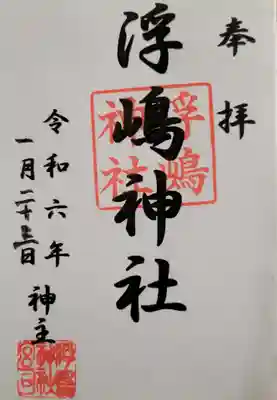 奉拝
浮嶋神社
浮嶋
神社
令和六年
一月二十三日
神主